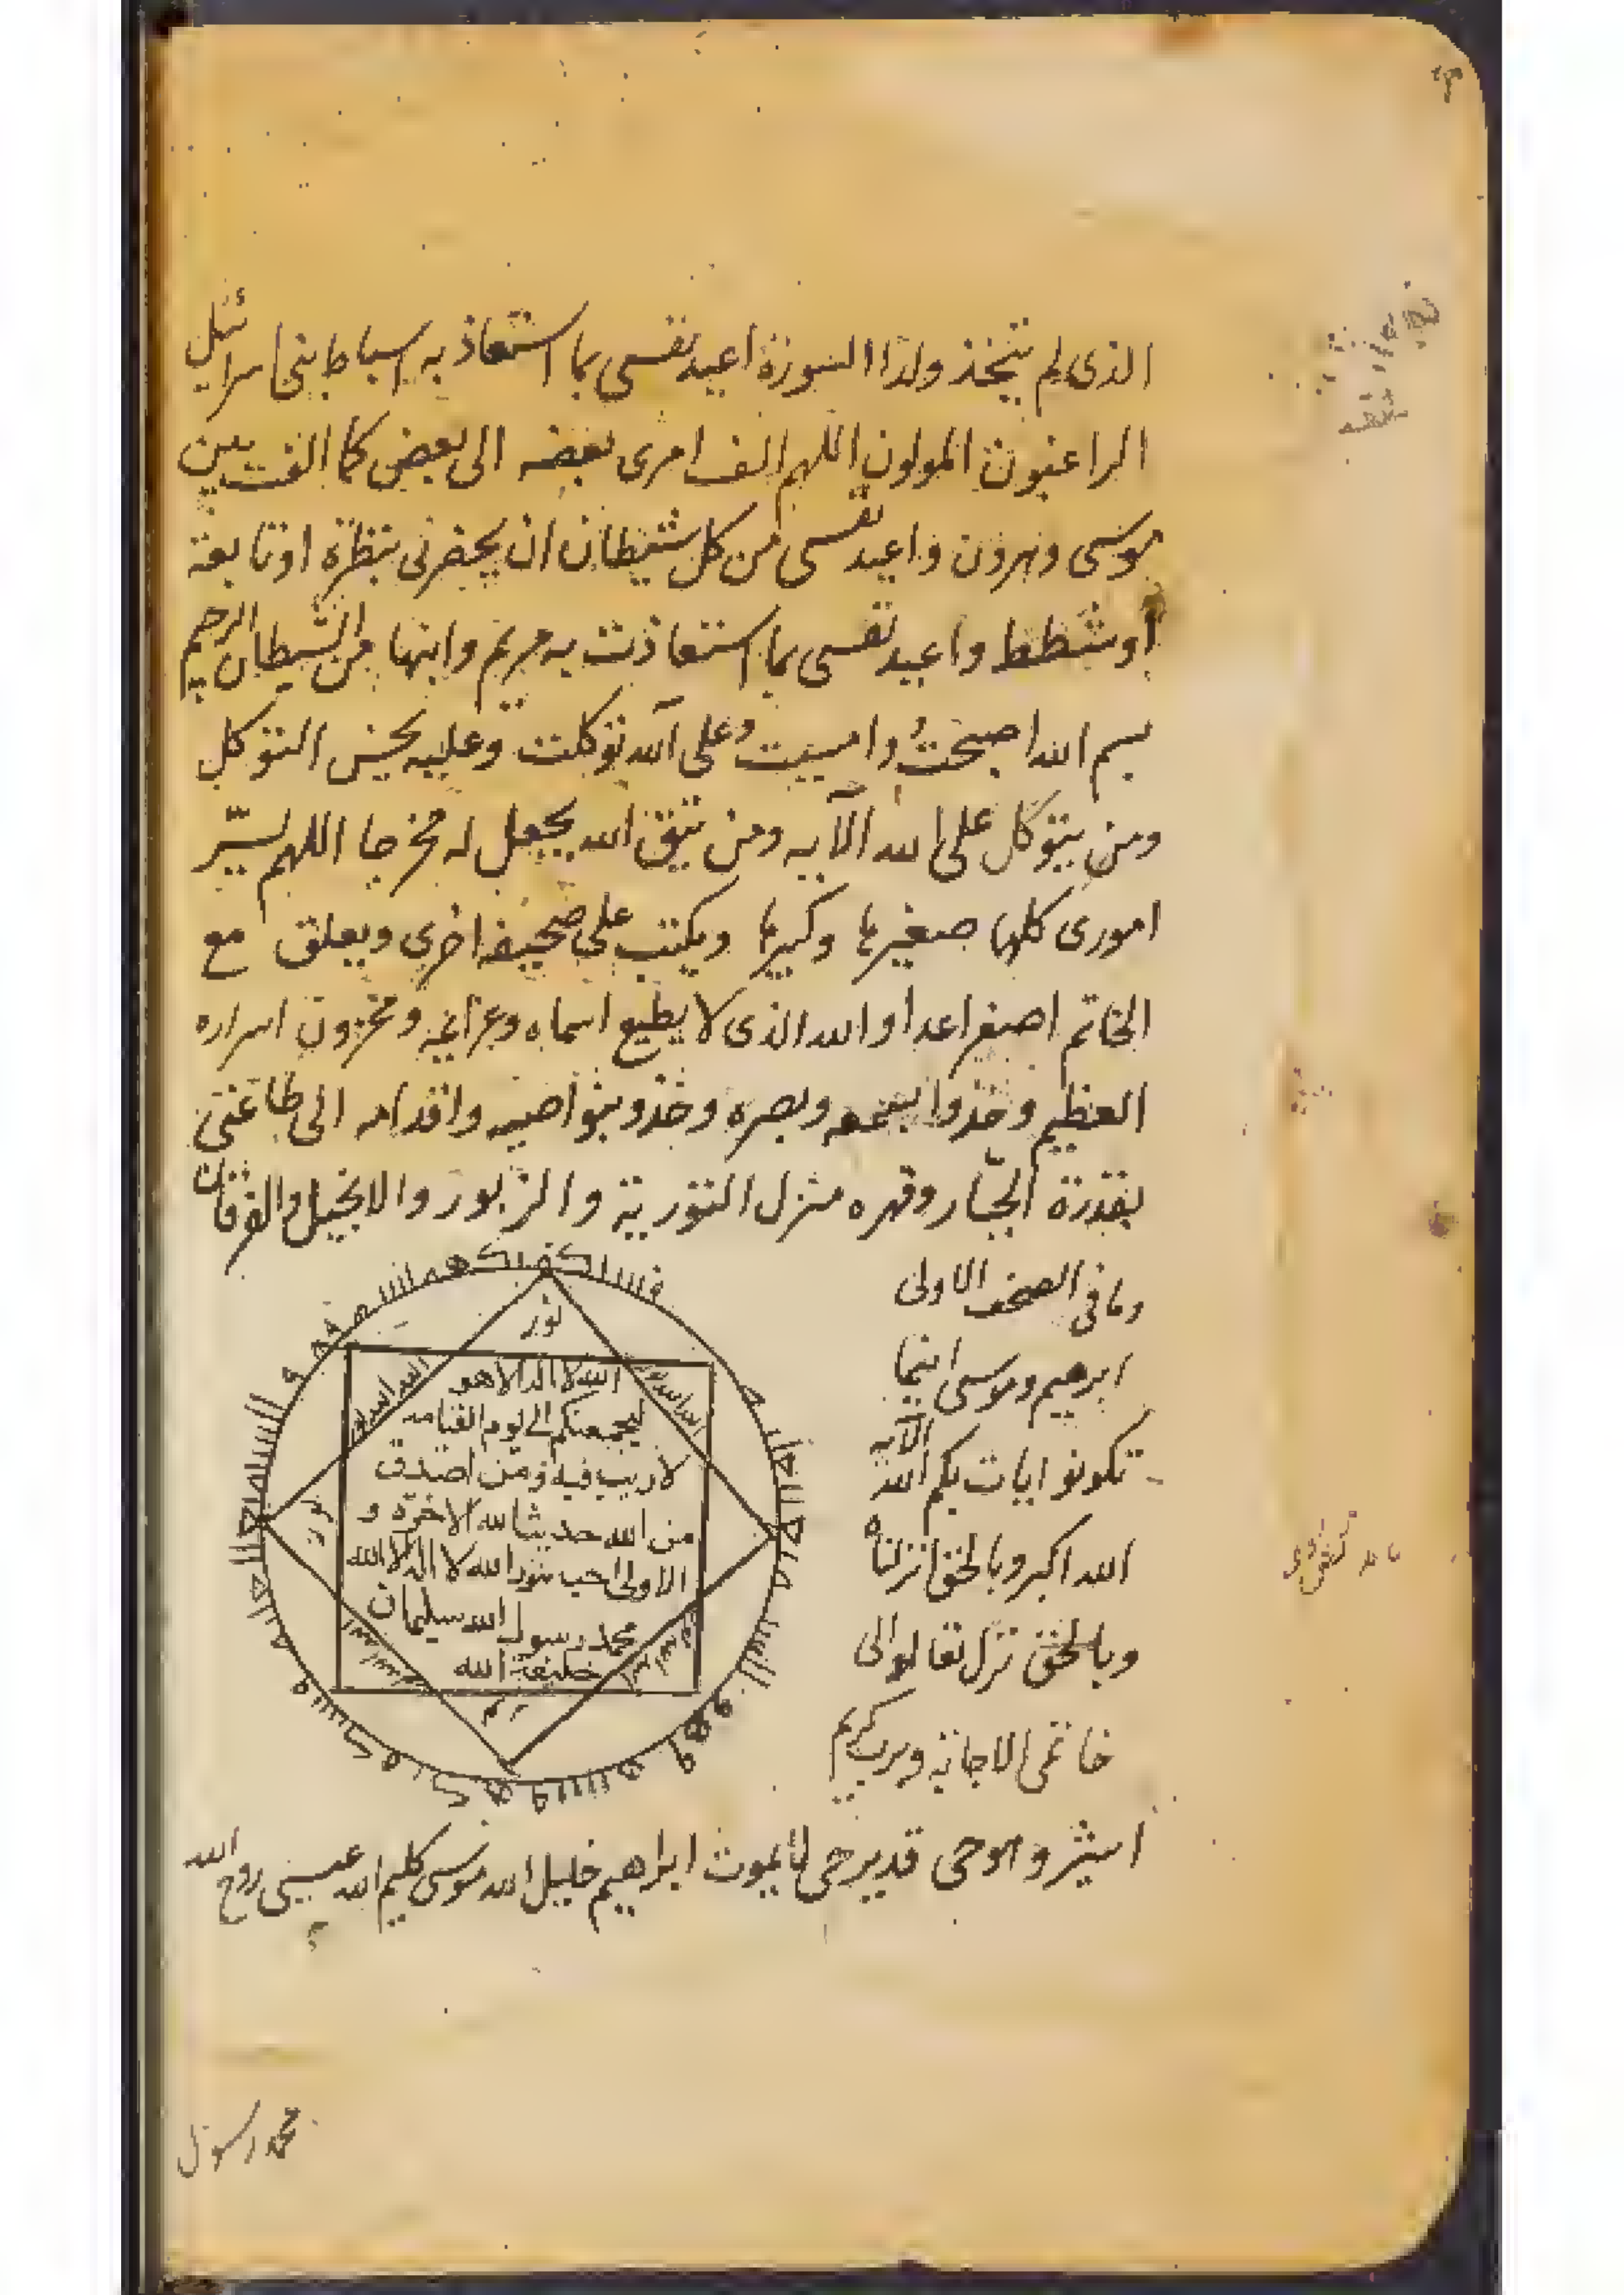 الذى لم يتخذ ولدا السورة اعيد نفسى بما استعاذ به اسباط بنى اسرائيل
الراغبون المولون اللهم الف امرى بعضه الى بعض كما الفت بين
موسى وهرون واعيد نفسى من كل شيطان ان يحضرنى بنظرة او تابعة
او شطط واعيد نفسى بما استعاذت به مريم وابنها من الشيطان الرجيم
بسم الله اصبحت وامسيت وعلى الله توكلت وعليه يحسن التوكل
ومن يتوكل على الله الآيه ومن يتق الله يجعل له مخرجا اللهم يسّر
امورى كلها صغيرها وكبيرها ويكتب على صحيفه اخرى ويعلق مع
الخاتم اصغر اعدا والله الذى لا يطيع اسماه وعزايمه ومخزون اسراره
العظيم وخذوا بسمعه وبصره وخذو بنواصيه واقدامه الى طاعتى
بقدرة الجبّار وقهره منزل التورية والزبور والانجيل والفرقان
وما فى الصحف الاولى
ابرهيم وموسى اينما
تكونو ايات بكم الله الآيه
الله اكبر وبالحق انزلناه
وبالحق نزل تعالوا الى
خاتمى الاجابة وبرب كريم
نور
الله لا اله الا هو
ليجمعنكم الى يوم القيامه
لا ريب فيه ومن اصدق
من الله حديثا لله الاخرة و
الاولى نور الله لا اله الا الله
محمد رسول الله سليمان
خليفة الله
نور
قدير حى لا يموت ابراهيم خليل الله موسى كليم الله عيسى روح الله
محمد رسول